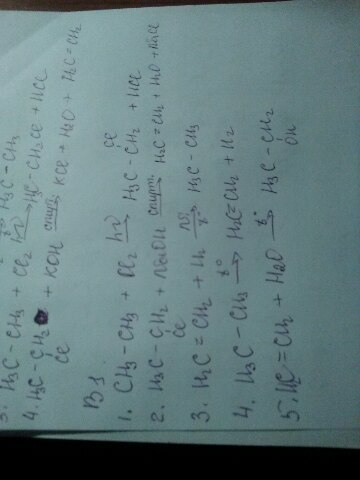 3. H₃C - CH₃ + Cl₂ hν→ H₃C-CH₂Cl + HCl
4. H₃C - CH₂ + KOH спирт.→ KCl + H₂O + H₂C=CH₂
Cl
В 1.
Cl
1. CH₃ - CH₃ + Cl₂ hν→ H₃C - CH₂ + HCl
2. H₃C - CH₂ + NaOH спирт.→ H₂C = CH₂ + H₂O + NaCl
Cl
3. H₂C = CH₂ + H₂ → H₃C - CH₃
4. H₃C - CH₃ t°→ H₂C=CH₂ + H₂
5. H₂C = CH₂ + H₂O t°→ H₃C - CH₂
OH